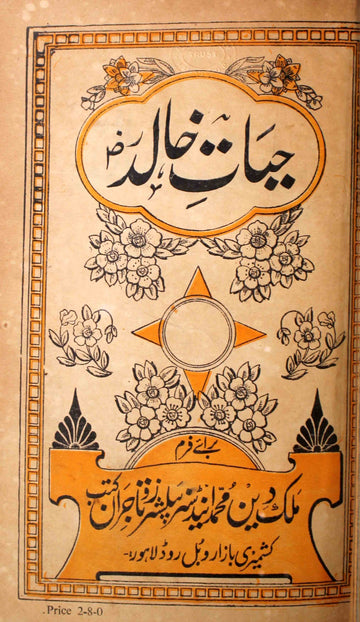 حیاتِ خالدؓ
برائے فرم
ملک دین محمد اینڈ سنز پبلشرز و تاجران کتب
کشمیری بازار و بل روڈ لاہور۔
Price 2-8-0